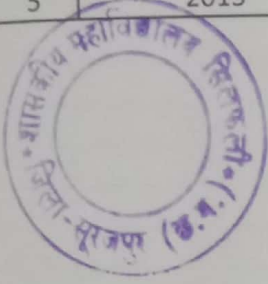 5 2015
शासकीय महाविद्यालय सिलफिली
जिला-सूरजपुर (छ.ग.)